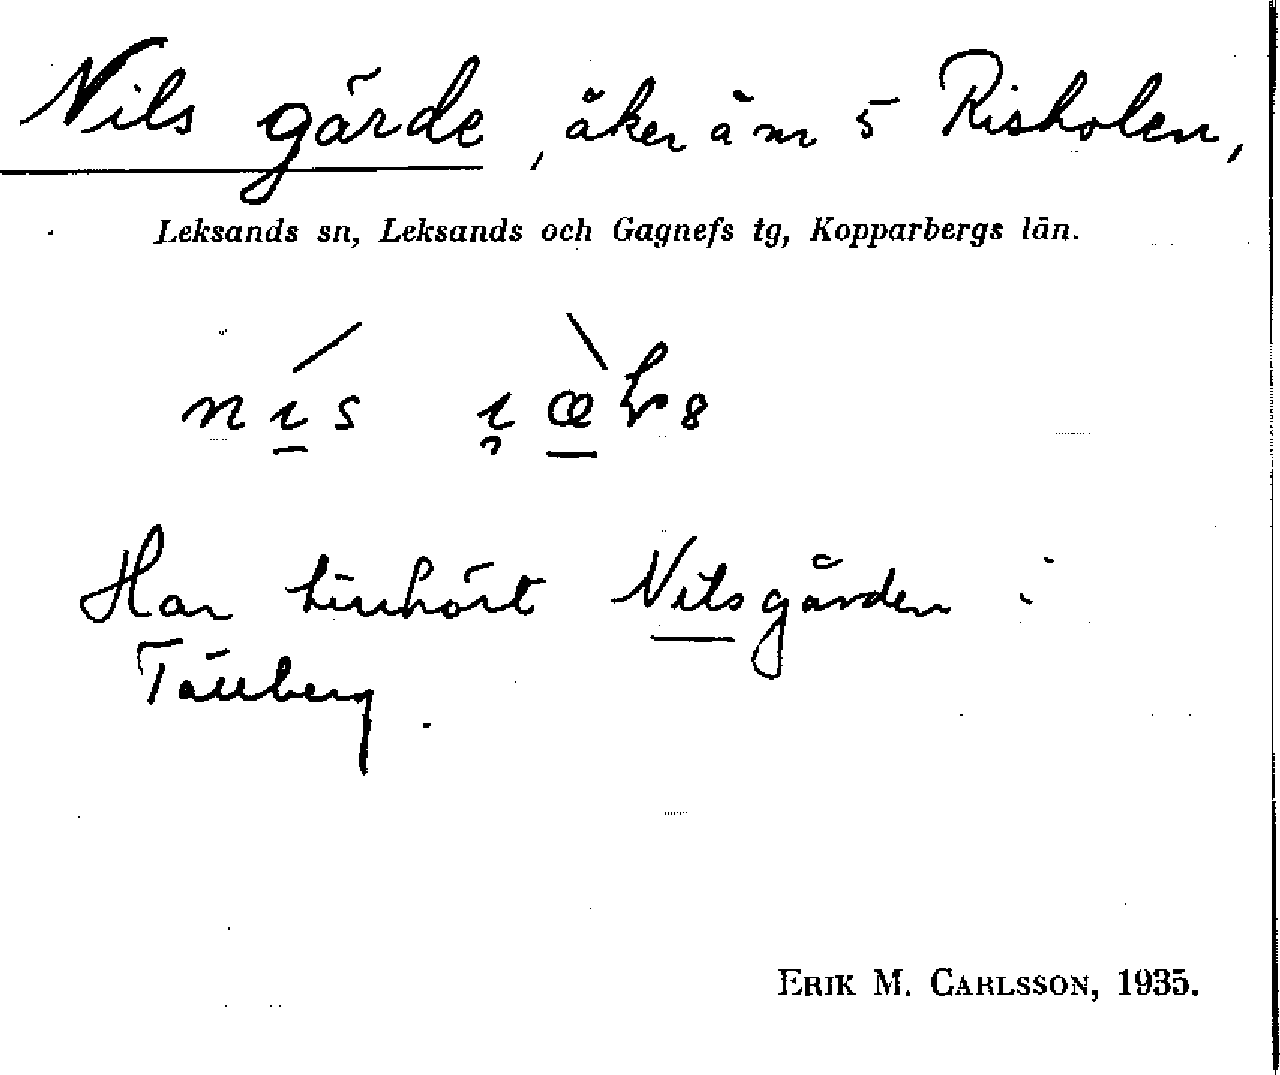 Nils gärde, åker å nr 5 Risholen,
Leksands sn, Leksands och Gagnefs tg, Kopparbergs län.
Har tillhört Nilsgården i
Tällberg.
ERIK M. CARLSSON, 1935.